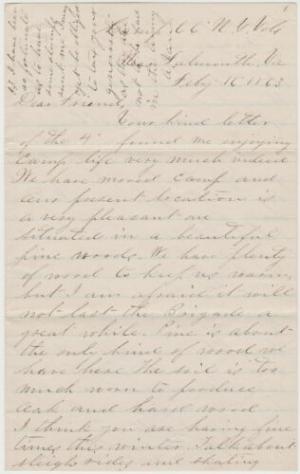 Camp 66" N.Y. Vols
Near Falmouth, Va
Feby 16 1863
Dear Friend,
Your kind letter
of the 4" found me enjoying
Camp life very much indeed
We have moved Camp and
our present location is
a very pleasant one
situated in a beautiful
pine woods. We have plenty
of wood to keep us warm
but I am afraid it will
not last the Brigade a
great while. Pine is about
the only kind of wood we
have here the soil is too
much worn to produce
oak and hard wood
I think you are having fine
times this winter. Talk about
sleigh rides and skating